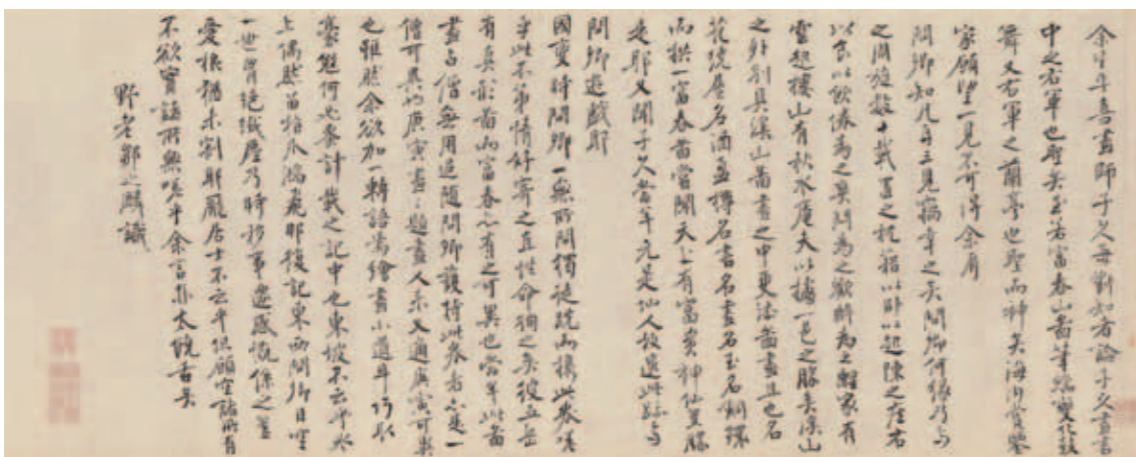 余生平喜畫師子久每對知者論子久畫書
中之右軍也聖矣至若富春山圖筆端變化鼓
舞又右軍之蘭亭也聖而神矣海內賞鑒
家願望一見不可得余辱
問卿知凡再三見竊幸之矣問卿何緣乃與
之周旋數十載置之枕籍以卧以起陳之座右
以食以飲倦為之爽悶為之歡醉為之醒家有
雲起樓山有秋水庵夫以據一邑之勝矣溪山
之外別具溪山圖畫之中更添圖畫且也名
花繞屋名酒盈樽名書名畫名玉名銅環
而拱一富春圖嘗聞天上有富貴神仙豈勝
是耶又聞子久當年元是仙人故遺此跡與
問卿遊戲耶
國變時問卿一無所問獨徒跣而攜此卷嗟
乎此不第情好寄之直性命殉之矣彼五岳
有真形圖而富春亦有之可異也當年此圖
畫與僧無用追隨問卿護持此卷者亦是一
僧可異也庚寅畫題畫人來又適庚寅可異
也雖然余欲加一轉語焉繪畫小道耳巧取
豪奪何必蚤計載之記中也東坡不云乎冰
上偶然留指爪鴻飛那復計東西問卿目空
一世胸絕纖塵乃時移事遷感慨係之豈
愛根猶未割耶龐居士不云乎但願空諸所有
不欲實諸所無嗟乎余言亦太饒舌矣
野老鄒之麟識